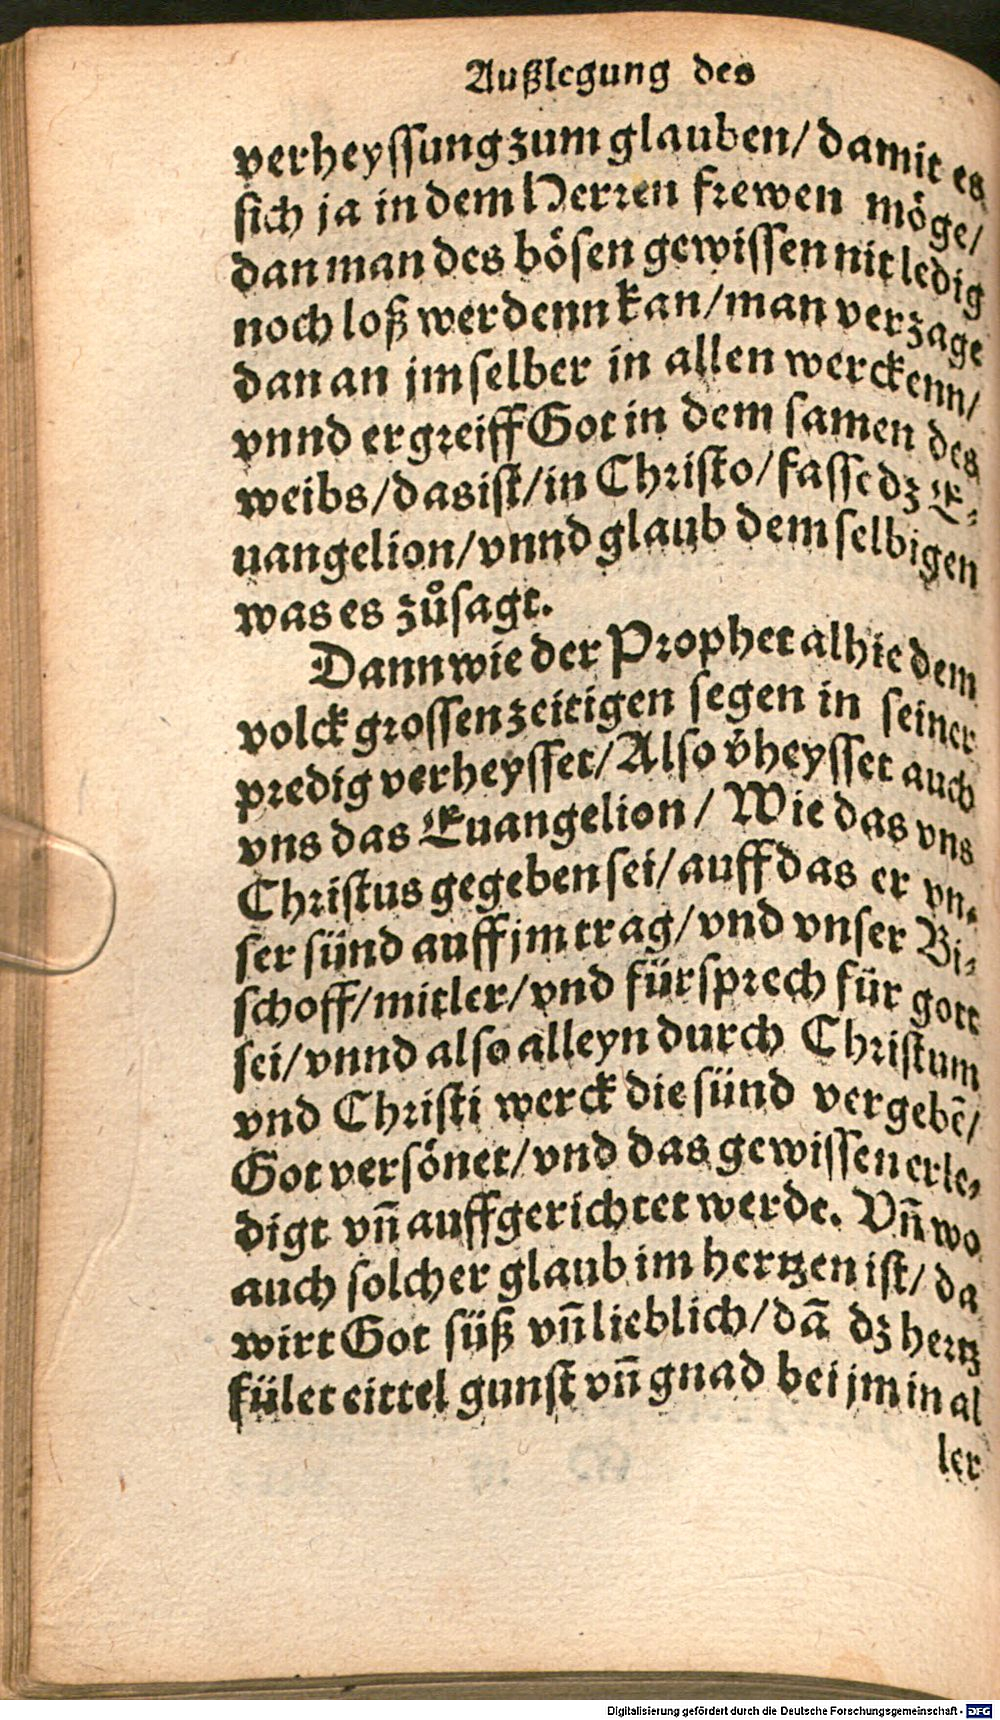 Außlegung des
verheyssung zum glauben/ damit es
sich ja in dem Herren frewen möge/
dan man des bösen gewissen nit ledig
noch loß werdenn kan/ man verzage
dan an jm selber in allen werckenn/
vnnd ergreiff Got in dem samen des
weibs/ das ist/ in Christo/ fasse dz E-
uangelion/ vnnd glaub dem selbigen
was es zůsagt.
Dann wie der Prophet alhie dem
volck grossen zeitigen segen in seiner
predig verheysset/ Also v̈heysset auch
vns das Euangelion/ Wie das vns
Christus gegeben sei/ auff das er vn-
ser sünd auff jm trag/ vnd vnser Bi-
schoff/ mitler/ vnd fürsprech für gott
sei/ vnnd also alleyn durch Christum
vnd Christi werck die sünd vergebē/
Got versönet/ vnd das gewissen erle-
digt vñ auffgerichtet werde. Vñ wo
auch solcher glaub im hertzen ist/ da
wirt Got süß vñ lieblich/ dā dz hertz
fület eittel gunst vñ gnad bei jm in al
ler
Digitalisierung gefördert durch die Deutsche Forschungsgemeinschaft - DFG